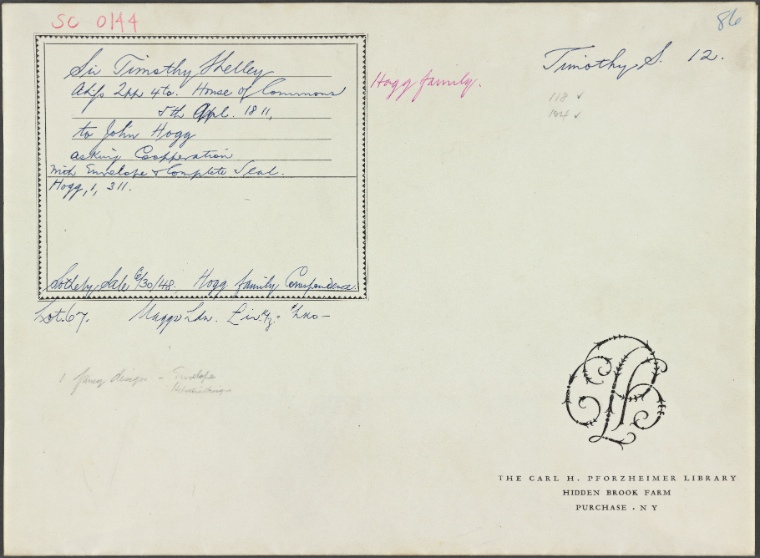 SC 0144
86
Sir Timothy Shelley
ALS 2pp 4to. House of Commons
5th Apl. 1811,
to John Hogg
asking Cooperation
With Envelope & Complete Seal.
Hogg, 1, 311.
Sotheby Sale 6/30/48. Hogg family Correspondence.
Lot. 67. Maggs Ldn.
Hogg family.
Timothy S. 12.
118 ✓
194 ✓
Envelope
THE CARL H. PFORZHEIMER LIBRARY
HIDDEN BROOK FARM
PURCHASE · N Y